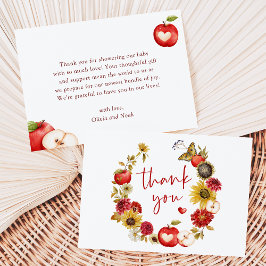 Thank you for showering our baby
with so much love! Your thoughtful gift
and support mean the world to us as
we prepare for our newest bundle of joy.
We're grateful to have you in our lives!
with love,
Olivia and Noah
thank
you